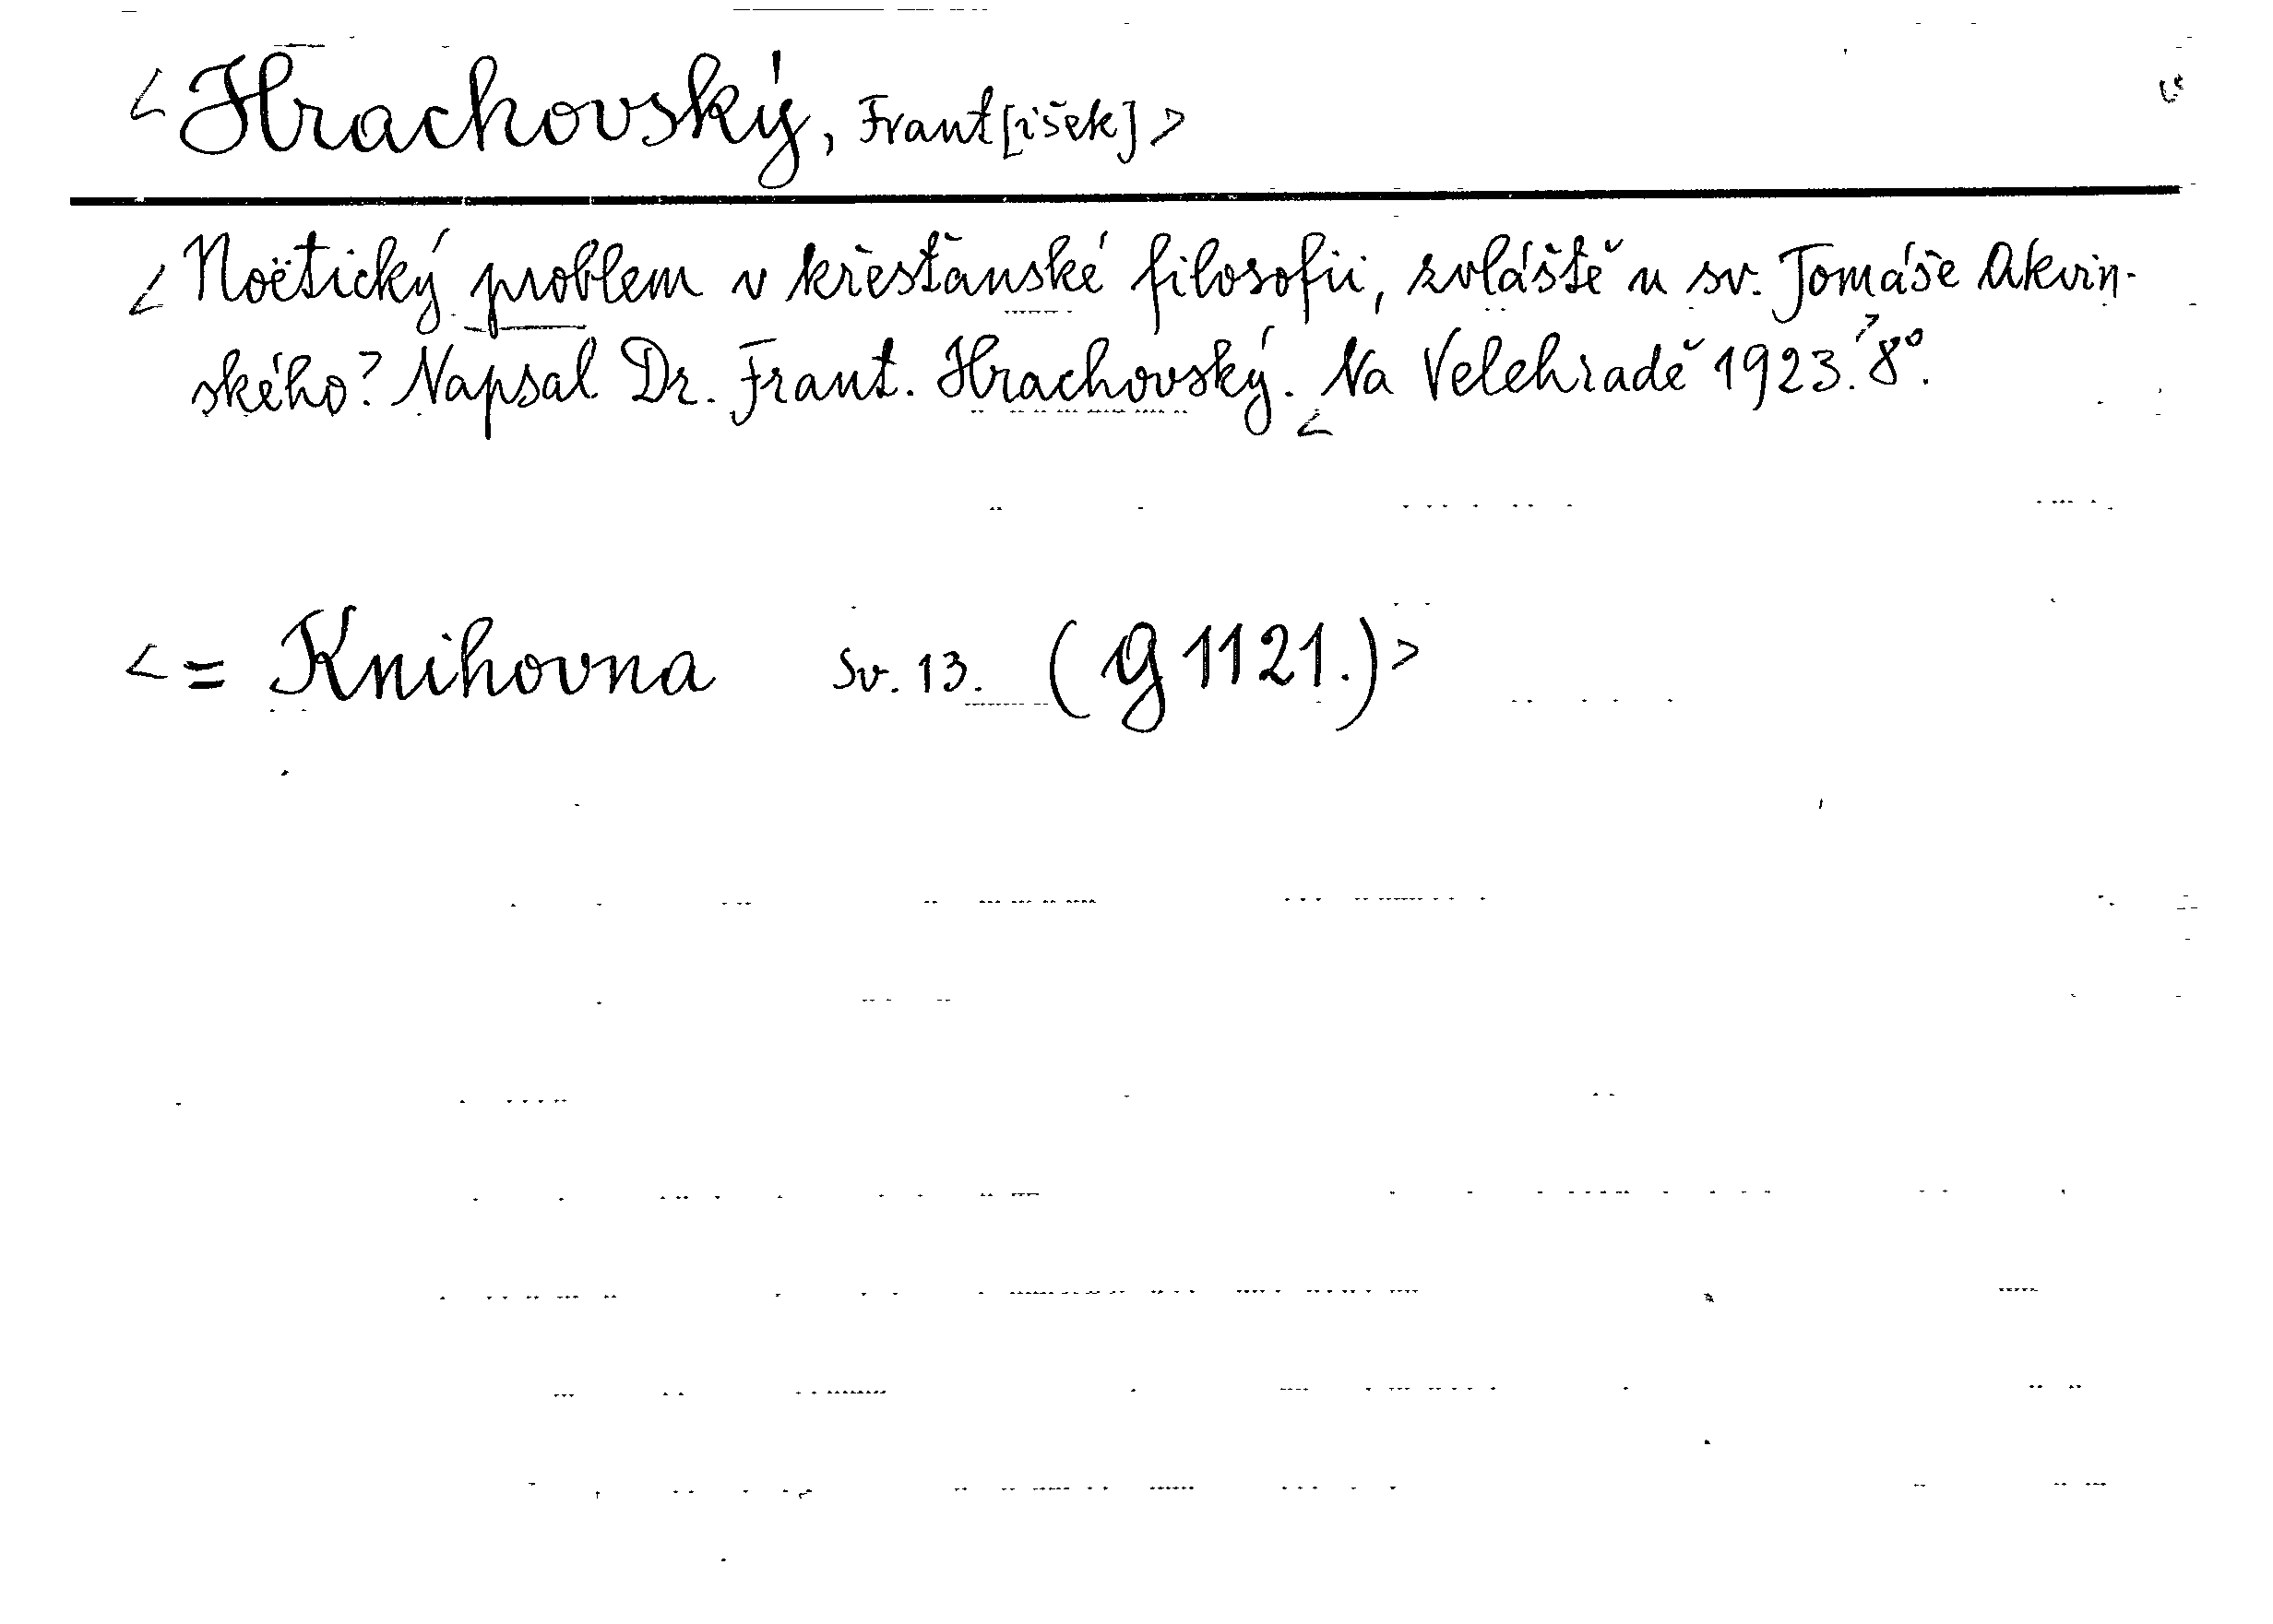 <Hrachovský, Frant[išek]>
<Noëtický problem v křesťanské filosofii, zvláště u sv. Tomáše Akvin-
ského? Napsal Dr. Frant. Hrachovský. <Na Velehradě 1923.> 8°.
<= Knihovna sv. 13. (g 1121.)>